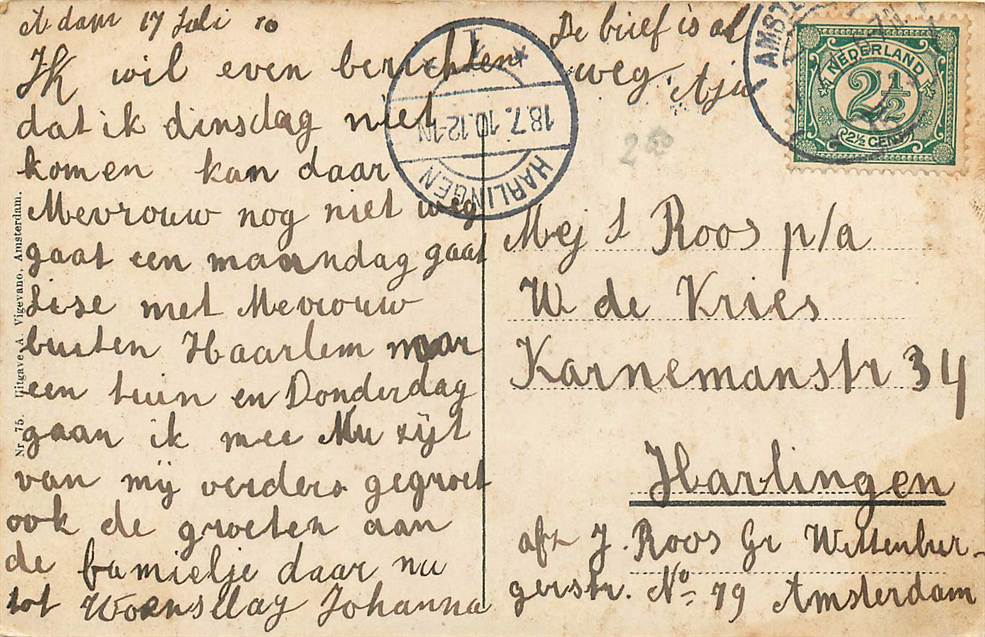 A dam 17 Juli 10
Ik wil even berichten
dat ik dinsdag niet
komen kan daar
Mevrouw nog niet weg
gaat een maandag gaat
Lise met Mevrouw
buiten Haarlem naar
een tuin en Donderdag
gaan ik mee Nu zijt
van mij verders gegroet
ook de groeten aan
de familje daar nu
tot Woensdag Johanna
De brief is al
weg. Aju
HARLINGEN
18.7.10.12-1N
1
AMST
NEDERLAND
2½
2½ CENT
Mej S Roos p/a
W de Vries
Karnemanstr 34
Harlingen
afz J. Roos Gr Wittenbur-
gerstr. No 79 Amsterdam
Nr. 75. Uitgave A. Vigevano, Amsterdam.